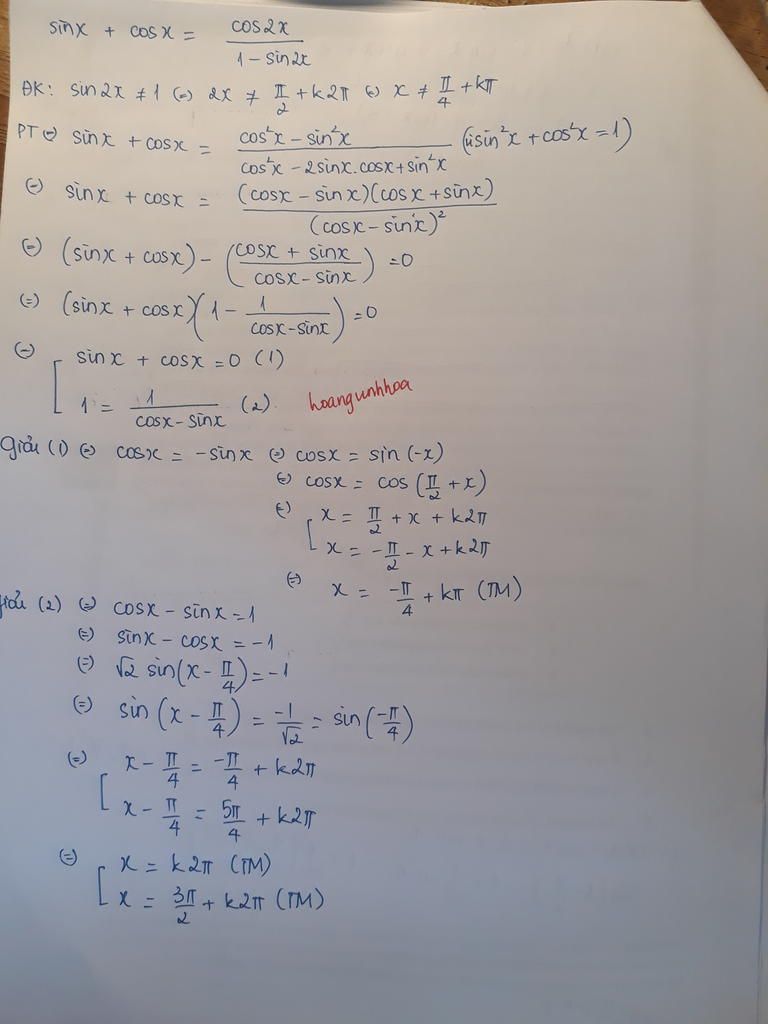 sinx + cosx = cos2x / (1 - sin2x)
ĐK: sin2x ≠ 1 (=) 2x ≠ π/2 + k2π (=) x ≠ π/4 + kπ
PT (=) sinx + cosx = (cos²x - sin²x) / (cos²x - 2sinx.cosx + sin²x) (vì sin²x + cos²x = 1)
(=) sinx + cosx = (cosx - sinx)(cosx + sinx) / (cosx - sinx)²
(=) (sinx + cosx) - ((cosx + sinx) / (cosx - sinx)) = 0
(=) (sinx + cosx)(1 - 1 / (cosx - sinx)) = 0
(=) [ sinx + cosx = 0 (1)
1 = 1 / (cosx - sinx) (2) hoangunhhoa
Giải (1) (=) cosx = -sinx (=) cosx = sin(-x)
(=) cosx = cos(π/2 + x)
(=) [ x = π/2 + x + k2π
x = -π/2 - x + k2π
(=) x = -π/4 + kπ (TM)
Giải (2) (=) cosx - sinx = 1
(=) sinx - cosx = -1
(=) √2 sin(x - π/4) = -1
(=) sin(x - π/4) = -1/√2 = sin(-π/4)
(=) [ x - π/4 = -π/4 + k2π
x - π/4 = 5π/4 + k2π
(=) [ x = k2π (TM)
x = 3π/2 + k2π (TM)